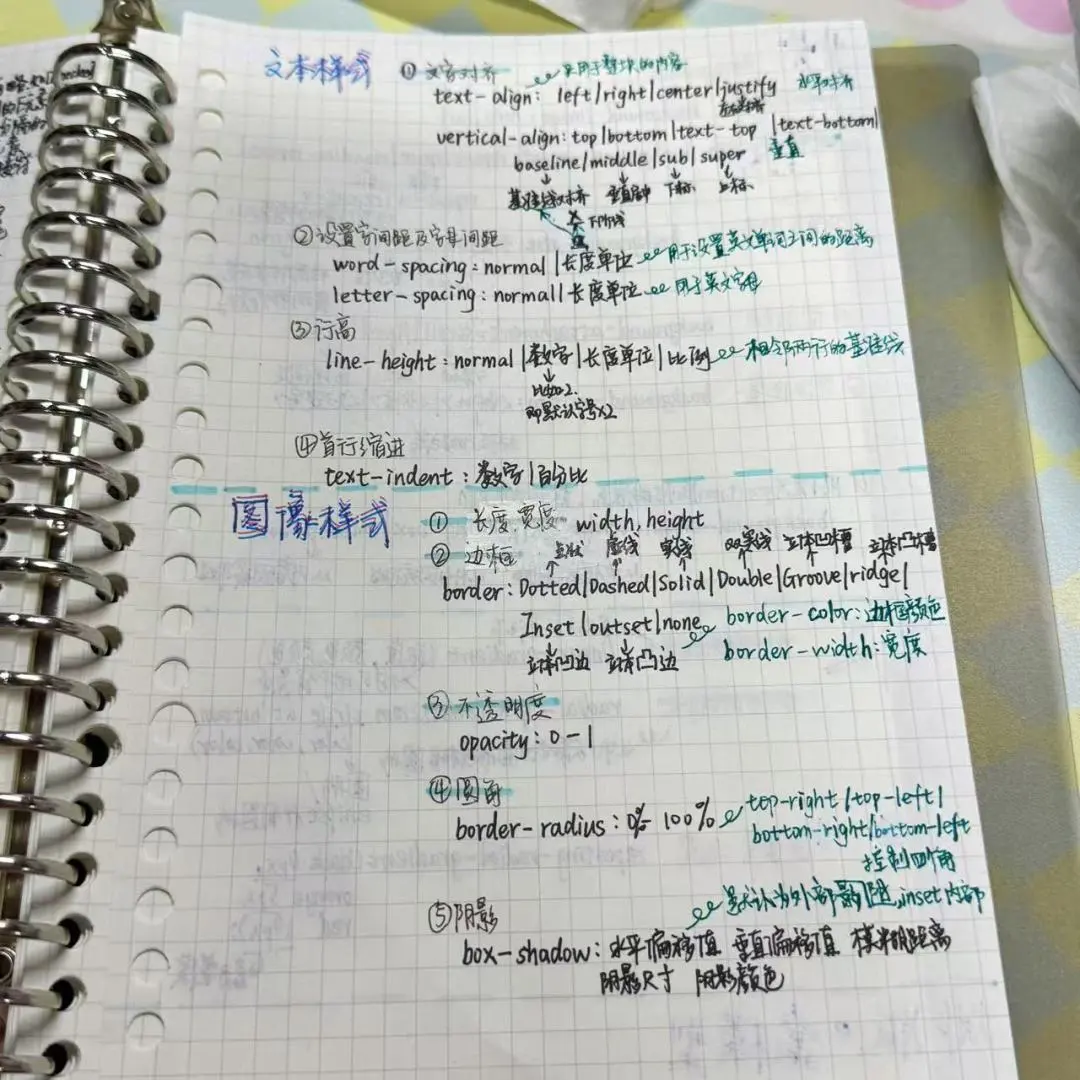 文本样式 ① 文字对齐 只用于整块的内容
text-align: left|right|center|justify 水平对齐
左右对齐
vertical-align: top|bottom|text-top|text-bottom|
baseline|middle|sub|super 垂直
基准线对齐 垂直居中 下标 上标
下行线
② 设置字间距及字母间距
word-spacing: normal|长度单位 用于设置英文单词之间的距离
letter-spacing: normal|长度单位 用于英文字母
③ 行高
line-height: normal|数字|长度单位|比例 相邻两行的基准线
比如2.
即默认字号x2
④ 首行缩进
text-indent: 数字|百分比
图像样式 ① 长度、宽度 width, height
② 边框 点状 虚线 实线 双实线 立体凹槽 立体凸槽
border: Dotted|Dashed|Solid|Double|Groove|ridge|
Inset|outset|none border-color: 边框颜色
立体凹边 立体凸边 border-width: 宽度
③ 不透明度
opacity: 0-1
④ 圆角
border-radius: 0%-100% top-right/top-left/
bottom-right/bottom-left
控制四角
⑤ 阴影 默认为外部影阴,inset内部
box-shadow: 水平偏移值 垂直偏移值 模糊距离
阴影尺寸 阴影颜色